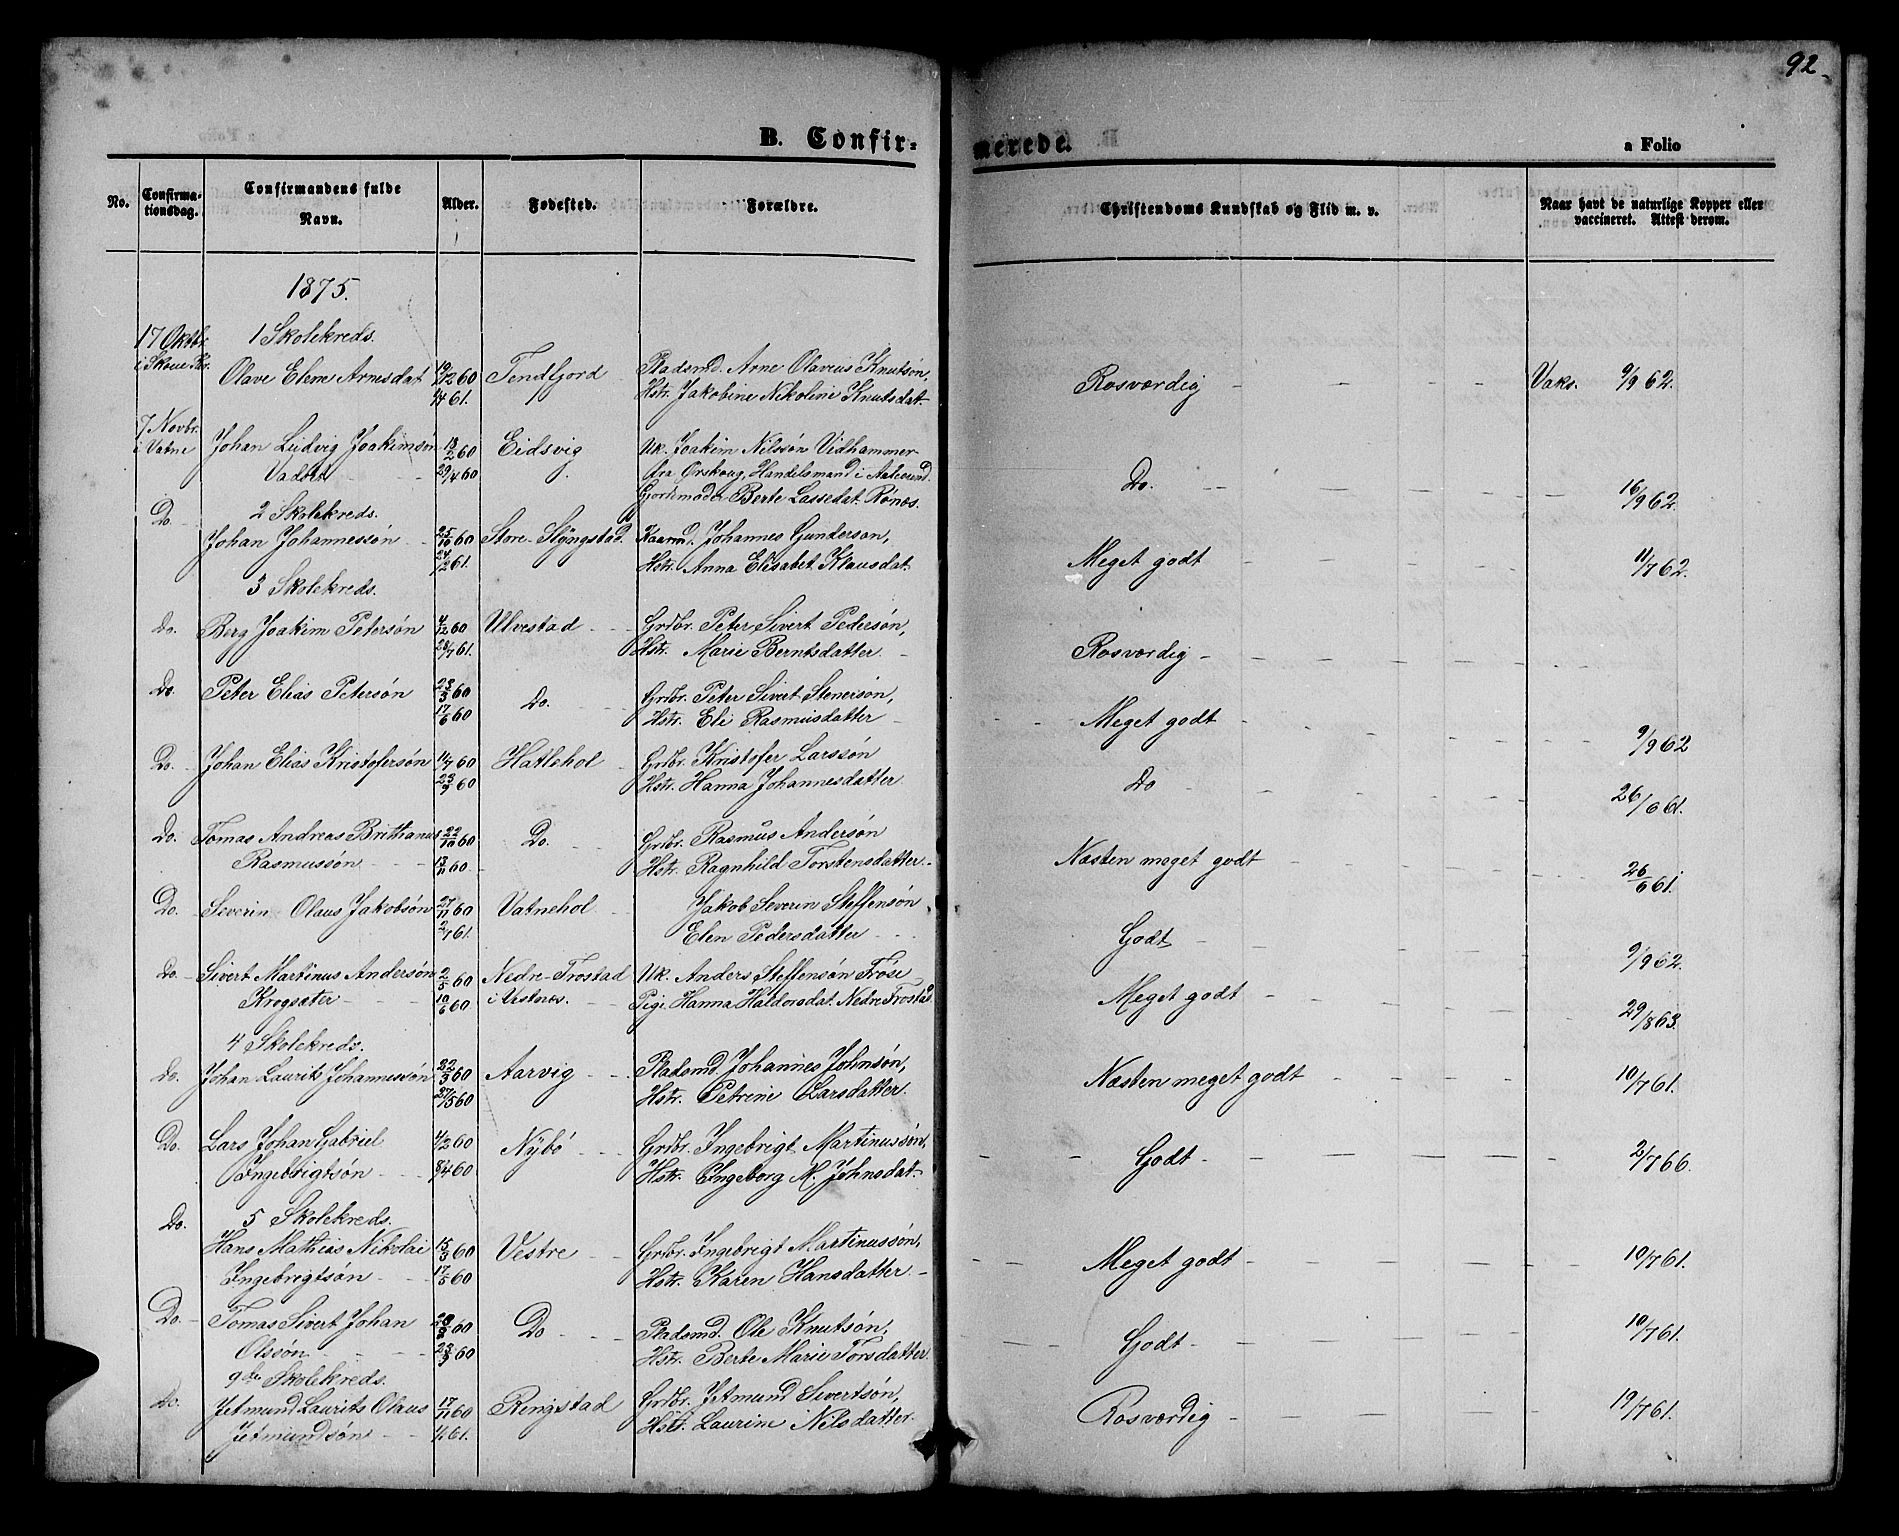 92.
B. Confirmerede.
a Folio
No.
Confirmationsdag.
Confirmandens fulde Navn.
Alder.
Fødested.
Forældre.
Christendoms Kundskab og Flid m. v.
Naar havt de naturlige Kopper eller vaccineret. Attest derom.
1875.
17 Oktbr. 1 Skolekreds.
Olave Elene Arnesdat 19/12 60 Tendfjord Pladsmd. Arne Olaveus Knutsøn, Rosværdig Vaks. 9/9 62.
61. Hstr. Jakobine Nikoline Knutsdat.
7 Novbr.
i Vatne Johan Ludvig Joakimsøn 18/2 60 Eidsvig Uk. Joakim Nilssøn Vidhammer
29/4 60 fra Ørskoug, Handelsmand i Aalesund Do. 16/9 62.
Gjordemoder Berte Lassedat. Rønæs.
Do. 2 Skolekreds.
Johan Johannessøn 25/10 60 Store-Slyngstad Kaarmd. Johannes Gunderson, Meget godt 11/7 62.
24/2 61. Hstr. Anna Elisabet Klausdat.
3 Skolekreds.
Do. Berg Joakim Petersøn 4/12 60 Ulvestad Grdbr. Peter Sivert Pedersøn, Rosværdig
61. Hstr. Marie Berntsdatter
Do. Peter Elias Petersøn 23/3 60 Do. Grdbr. Peter Sivert Stenersøn, Meget godt 9/9 62
17/6 60 Hstr. Eli Rasmusdatter
Do. Johan Elias Kristofersøn 11/7 60 Hatlehol Grdbr. Kristofer Larssøn Do 26/6 61.
23/9 60 Hstr. Hanna Johannesdatter
Do. Tomas Andreas Brithanus 22/10 60 Do. Grdbr. Rasmus Andersøn Næsten meget godt 26/6 61.
Rasmussøn 18/11 60 Hstr. Ragnhild Torstensdatter
Do. Severin Olaus Jakobsøn 27/11 60 Vatnehol Jakob Severin Steffensøn Godt 9/9 62.
2/7 61. Elen Pedersdatter
Do. Sivert Martinus Andersøn 2/5 60 Nedre-Frostad Uk. Anders Steffensøn Frøse Meget godt 29/8 63.
Krogsæter 10/6 60 i Vestnes. Pige Hanna Haldorsdat. Nedre Frostad
4 Skolekreds.
Do. Johan Laurits Johannessøn 22/3 60 Aarvig Pladsmd. Johannes Johnsøn, Næsten meget godt 10/7 61.
27/5 60 Hstr. Petrine Larsdatter.
Do. Lars Johan Gabriel 4/2 60 Nybø Grdbr. Ingebrigt Martinussøn, Godt 2/7 66.
Ingebrigtsøn 8/4 60 Hstr. Ingeborg M. Johnsdat.
Do. 5 Skolekreds.
Hans Mathias Nikolai 15/3 60 Vestre Grdbr. Ingebrigt Martinussøn, Meget godt 10/7 61.
Ingebrigtsøn 17/5 60 Hstr. Karen Hansdatter
Do. Tomas Sivert Johan 60 Do Pladsmd. Ole Knutsøn, Godt 10/7 61.
Olssøn 23/9 60 Hstr. Berte Marie Torsdatter
9de Skolekreds.
Do. Jetmund Laurits Olaus 17/11 60 Ringstad Grdbr. Jetmund Sivertsøn, Rosværdig 19/7 61.
Jetmundsøn 61. Hstr. Laurine Nilsdatter.